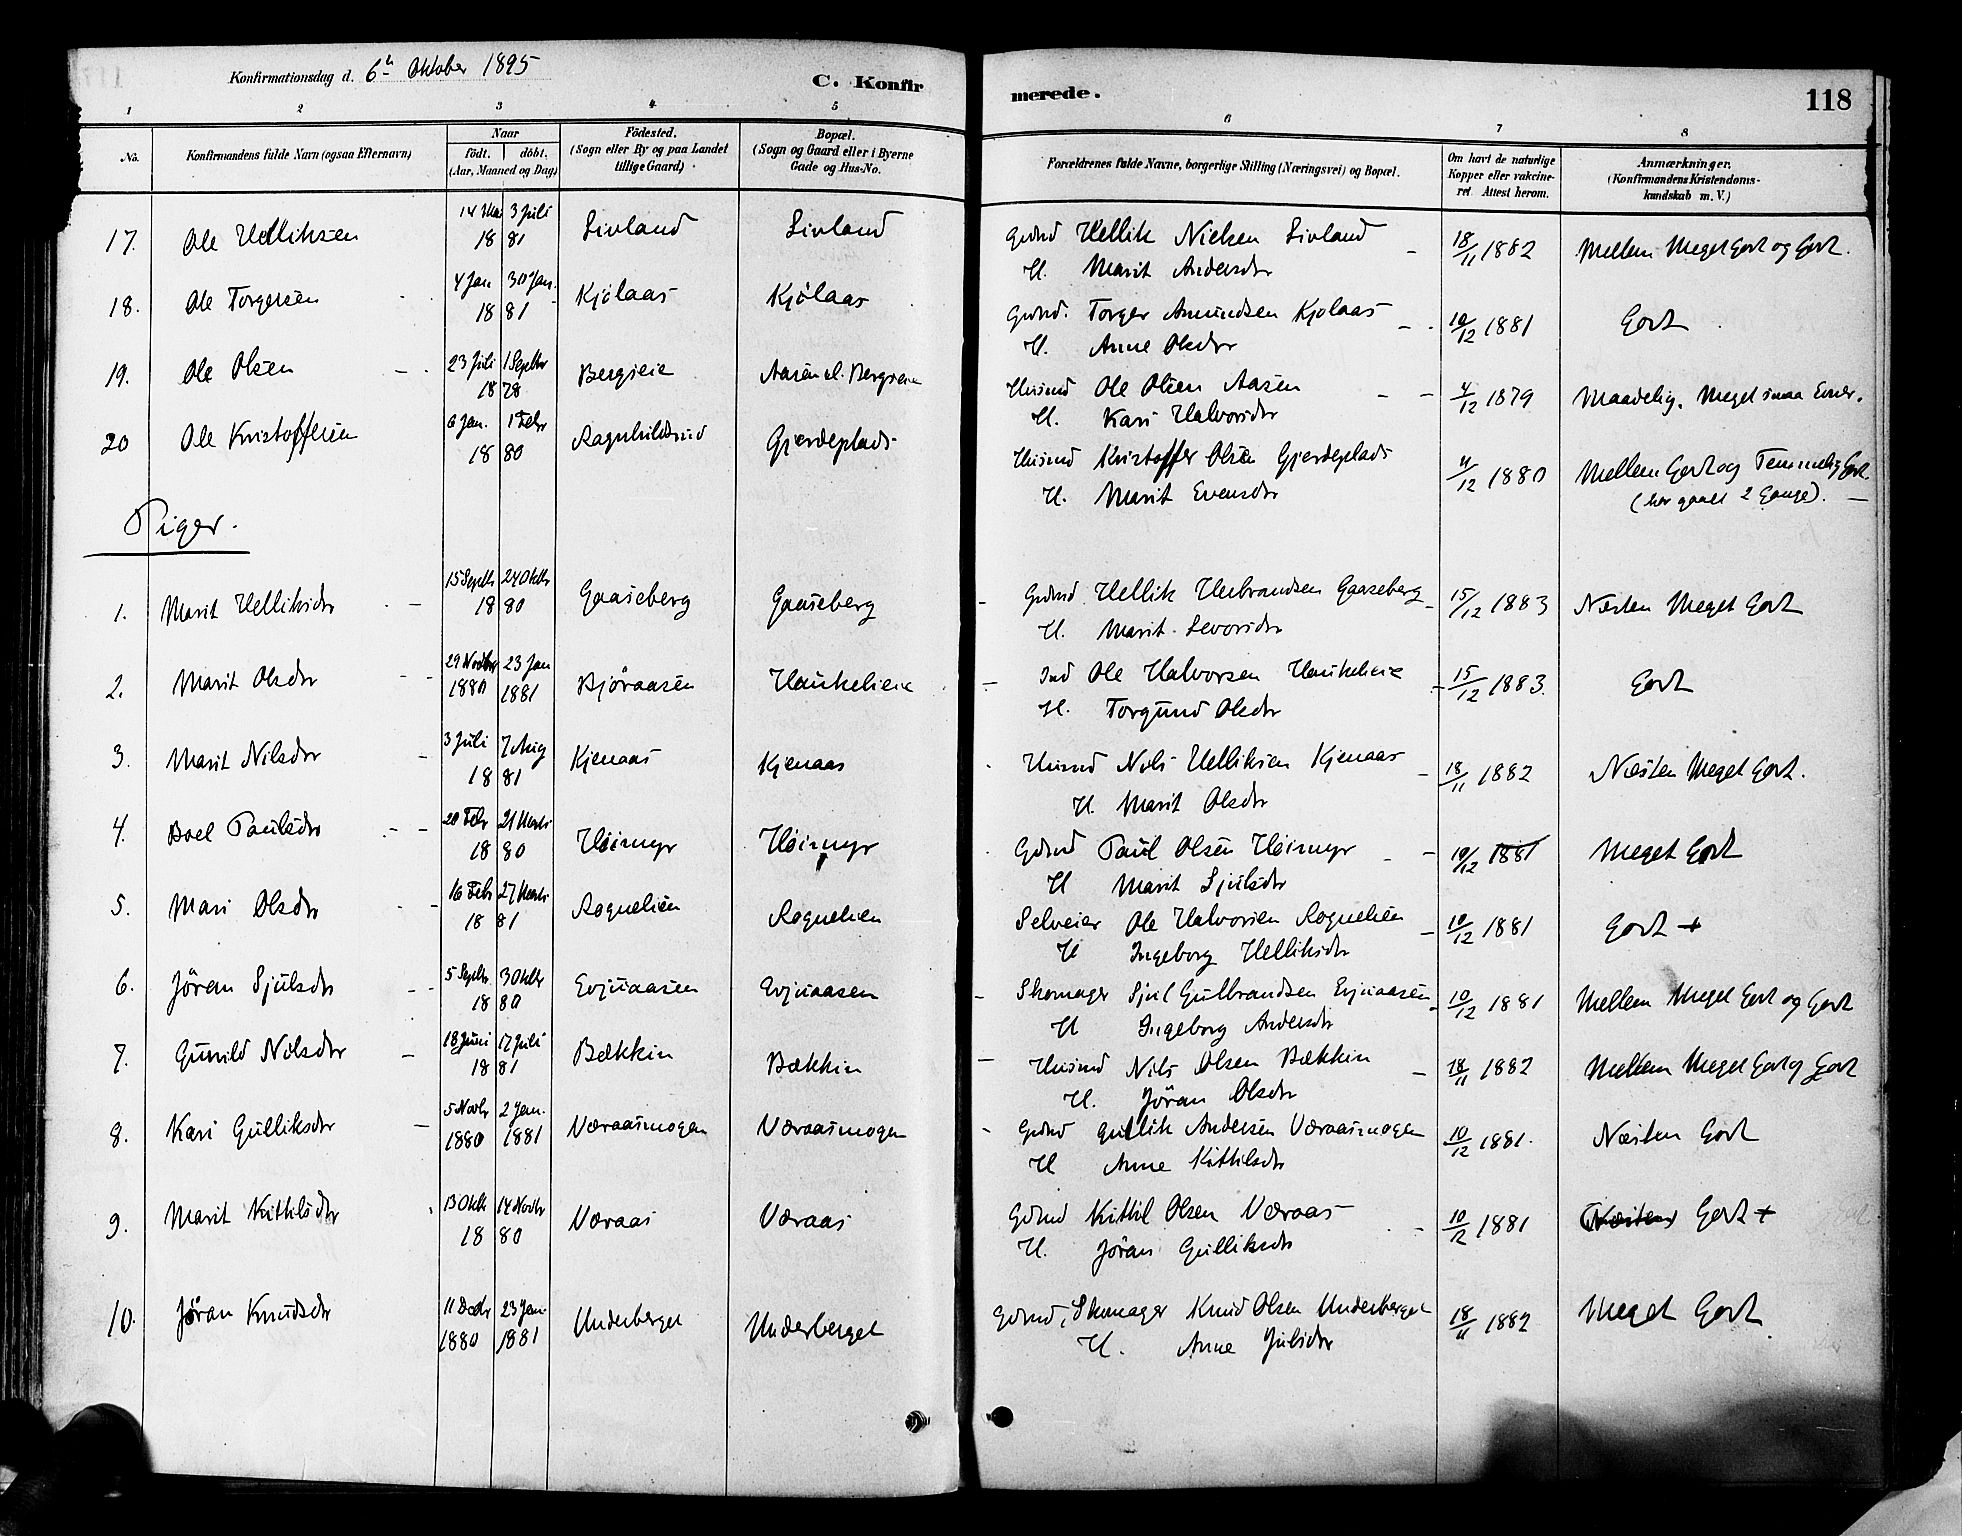 Konfirmationsdag d. 6te Oktober 1895
C. Konfirmerede.
118
1 2 3 4 5 6 7 8
No. Konfirmandens fulde Navn (ogsaa Efternavn) Naar födt. döbt. (Aar, Maaned og Dag) Födested. (Sogn eller By og paa Landet tillige Gaard) Bopæl. (Sogn og Gaard eller i Byerne Gade og Hus-No. Forældrenes fulde Navne, borgerlige Stilling (Næringsvei) og Bopæl. Om havt de naturlige Kopper eller vakcineret. Attest herom. Anmærkninger. (Konfirmandens Kristendomskundskab m. V.)
17. Ole Helliksen 14 Mai 3 Juli 1881 Livland Livland Grdmd Hellik Nielsen Livland 18/11 1882 Mellem Meget Godt og Godt.
H. Marit Andersdr
18. Ole Torgersen 4 Jan 30 Jan. 1881 Kjölaas Kjölaas Grdmd. Torger Amundsen Kjolaas 10/12 1881 Godt
H. Anne Olsdr
19. Ole Olsen 23 Juli 1 Septbr 1878 Bergseie Aasen u. Bergseie Husmd Ole Olsen Aasen 4/12 1879 Maadelig. Meget smaa Evner.
H. Kari Halvorsdr
20 Ole Kristoffersen 6 Jan. 1 Febr 1880 Ragnhildsrud Gjerdeplads Husmd Kristoffer Olsen Gjerdeplads 4/12 1880 Mellem Godt og Temmelig Godt.
H. Marit Evensdr (har gaaet 2 Gange).
Piger.
1. Marit Helliksdr 15 Septbr 24 Oktbr 1880 Gaaseberg Gaaseberg Grdmd Hellik Herbrandsen Gaaseberg 15/12 1883 Næsten Meget Godt
H. Marit Sevorsdr
2. Marit Olsdr 29 Novbr 1880 23 Jan 1881 Björaasen Haukelieie Ind Ole Halvorsen Haukelieie 15/12 1883. Godt
H. Torgund Olsdr
3. Marit Nilsdr 3 Juli 7 Aug 1881 Kjenaas Kjenaas Husmd Nils Helliksen Kjenaas 18/11 1882 Næsten Meget Godt.
H. Marit Olsdr
4. Boel Paulsdr 20 Febr 21 Marts 1880 Høimyr Høimyr Gdmd Paul Olsen Høimyr 10/12 1881 Meget Godt
H Marit Sjulsdr
5. Mari Olsdr 16 Febr 27 Marts 1881 Rognelien Rognelien Selveier Ole Halvorsen Rognelien 10/12 1881 Godt +
H Ingeborg Helliksdr
6. Jöran Sjulsdr 5 Septbr 3 Oktbr 1880 Evjuaasen Evjuaasen Skomager Sjul Gulbrandsen Evjuaasen 10/12 1881 Mellem Meget Godt og Godt
H Ingeborg Andersdr
7. Gunild Nilsdr 18 Juni 17 Juli 1881 Bækkin Bækkin Husmd Nils Olsen Bækkin 18/11 1882 Mellem Meget Godt og Godt
H. Jöran Olsdr
8. Kari Gulliksdr 5 Novbr 1880 2 Jan. 1881 Væraasmogen Væraasmogen Grdmd Gullik Andersen Væraasmogen 10/12 1881. Næsten Godt
H Anne Kittilsdr
9. Marit Kittilsdr 13 Oktbr 14 Novbr 1880 Væraas Væraas Gdmd Kittil Olsen Væraas 10/12 1881 Næsten Godt +
H. Jöran Gulliksdr
10. Jöran Knudsdr 11 Decbr 1880 23 Jan 1881 Underberget Underberget Gdmd, Skomager Knud Olsen Underberget 18/11 1882 Meget Godt
H. Anne Julsdr